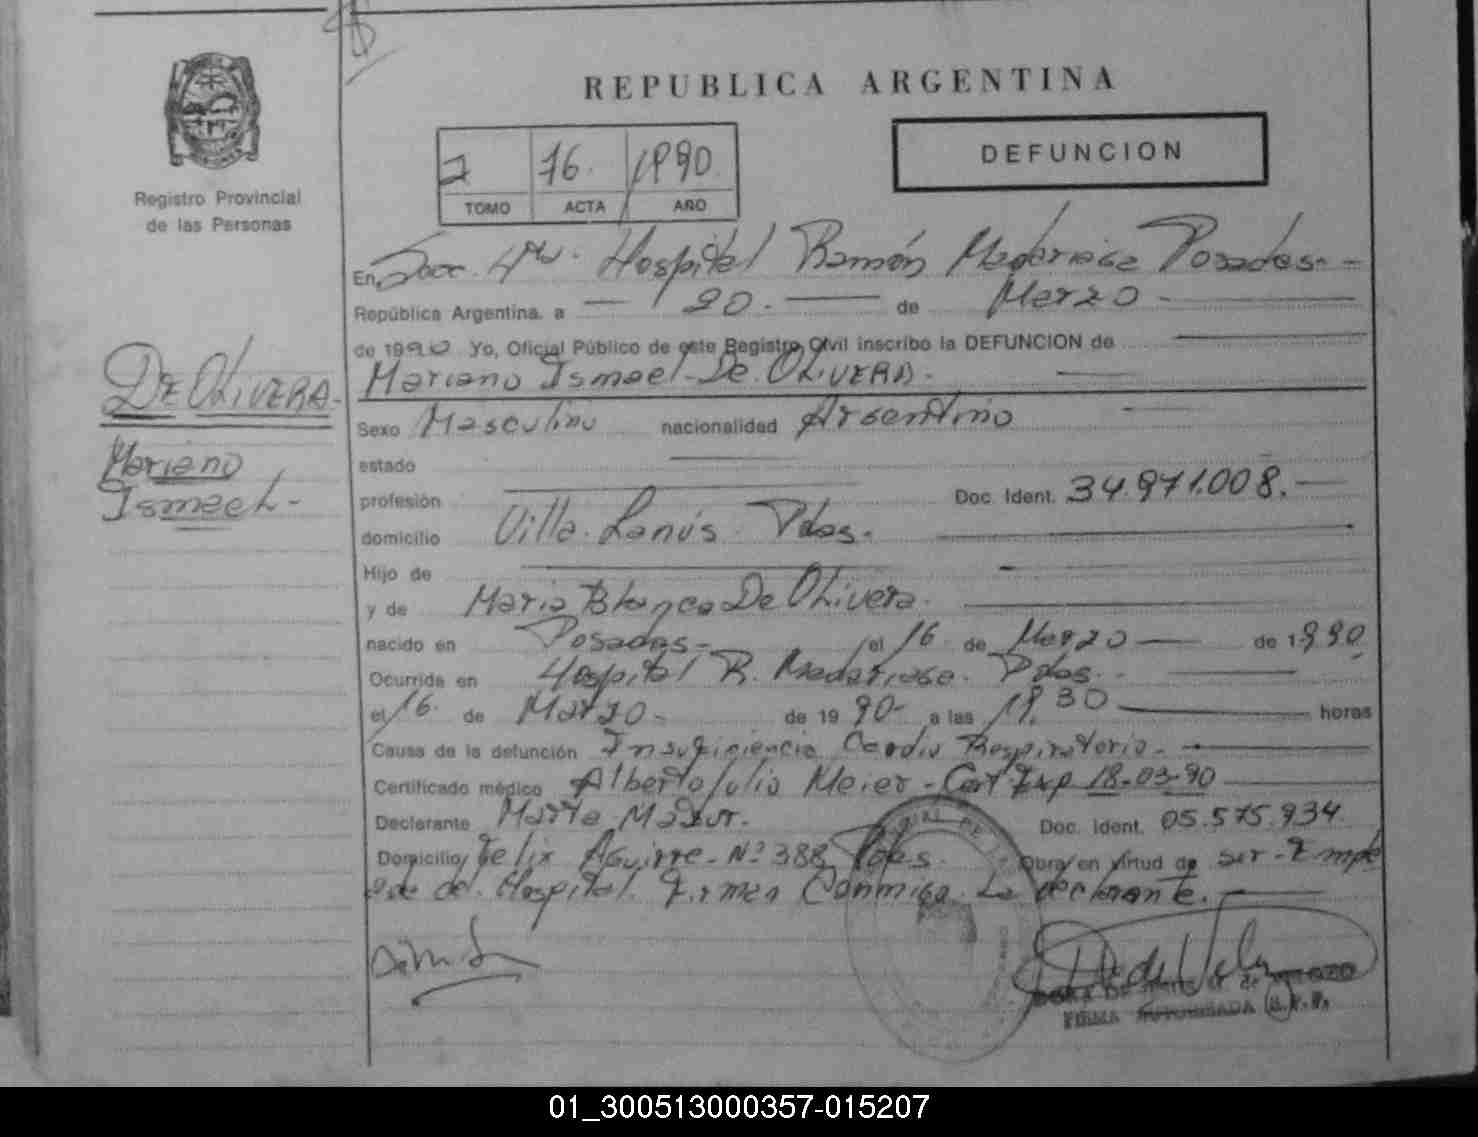 REPUBLICA ARGENTINA
Registro Provincial
de las Personas
76. 1990.
TOMO ACTA AÑO
DEFUNCION
En Secc. 4ta. Hospital Ramón Madariaga Posadas.-
República Argentina. a — 20. — de Marzo -
de 1990 Yo, Oficial Público de este Registro Civil inscribo la DEFUNCION de
Mariano Ismael De OLIVERA.
DE OLIVERA.
Mariano
Ismael.-
Sexo Masculino nacionalidad Argentino
estado
profesión Doc. Ident. 34.971.008.
domicilio Villa Lanús. Pdas.
Hijo de
y de Maria Blanca De Olivera.
nacido en Posadas.- el 16 de Marzo de 1990
Ocurrida en Hospital R. Madariaga. Pdas.
el 16. de Marzo - de 1990 - a las 30 horas
Causa de la defunción Insuficiencia Cardio Respiratoria.-
Certificado médico Alberto Julio Meier - Cert Exp 18-03-90
Declarante Marta Mazur. Doc. Ident. 05.575.934
Domicilio Felix Aguirre - Nº 388 Pdas. Obra en virtud de ser - Emple
ada del Hospital. Firman Conmigo La declarante.
FIRMA AUTORIZADA
01_300513000357-015207